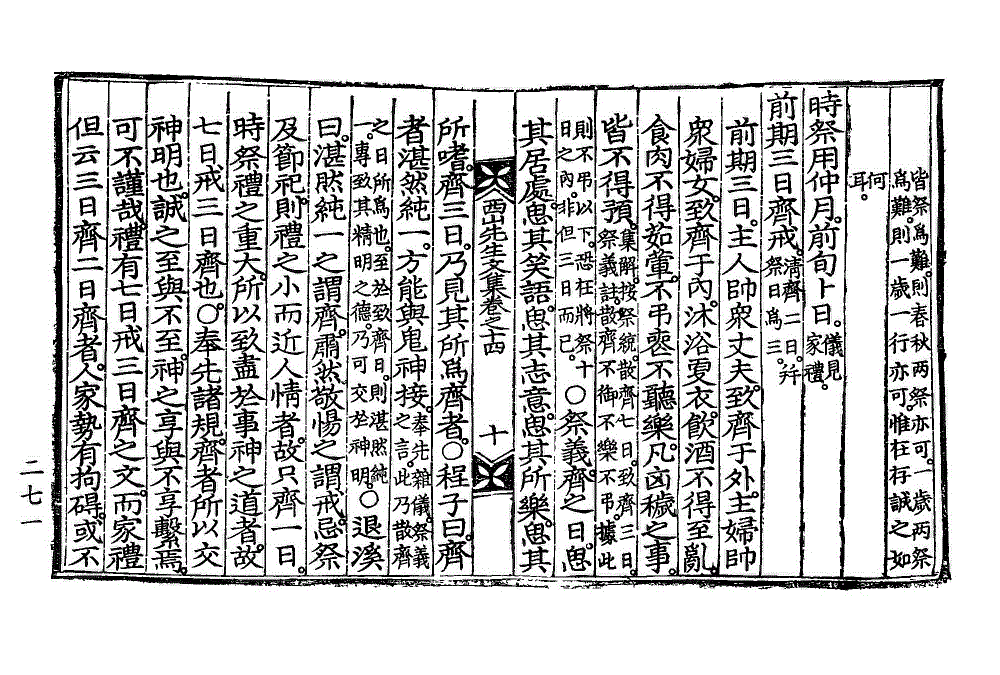 皆祭爲難則春秋兩祭亦可一歲兩祭
爲難則一歲一行亦可惟在存誠之如
何
耳
時祭用仲月前旬卜日儀見
家禮
前期三日齊戒淸齊二日并
祭日爲三
前期三日主人帥衆丈夫致齊于外主婦帥
衆婦女致齊于內沐浴更衣飮酒不得至亂
食肉不得茹葷不弔喪不聽樂凡凶穢之事
皆不得預集解按祭統散齊七日致齊三日
祭義註散齊不御不樂不弔據此
則不弔以下恐在將祭十
日之內非但三日而已○祭義齊之日思
其居處思其笑語思其志意思其所樂思其
西山先生文集卷之十四
十
所嗜齊三日乃見其所爲齊者○程子曰齊
者湛然純一方能與鬼神接奉先雜儀祭義
之言此乃散齊
之日所爲也至於致齊日則湛然純
一專致其精明之德乃可交於神明○退溪
曰湛然純一之謂齊肅然敬惕之謂戒忌祭
及節祀則禮之小而近人情者故只齊一日
時祭禮之重大所以致盡於事神之道者故
七日戒三日齊也○奉先諸規齊者所以交
神明也誠之至與不至神之享與不享繫焉
可不謹哉禮有七日戒三日齊之文而家禮
但云三日齊二日齊者人家勢有拘碍或不
二七一